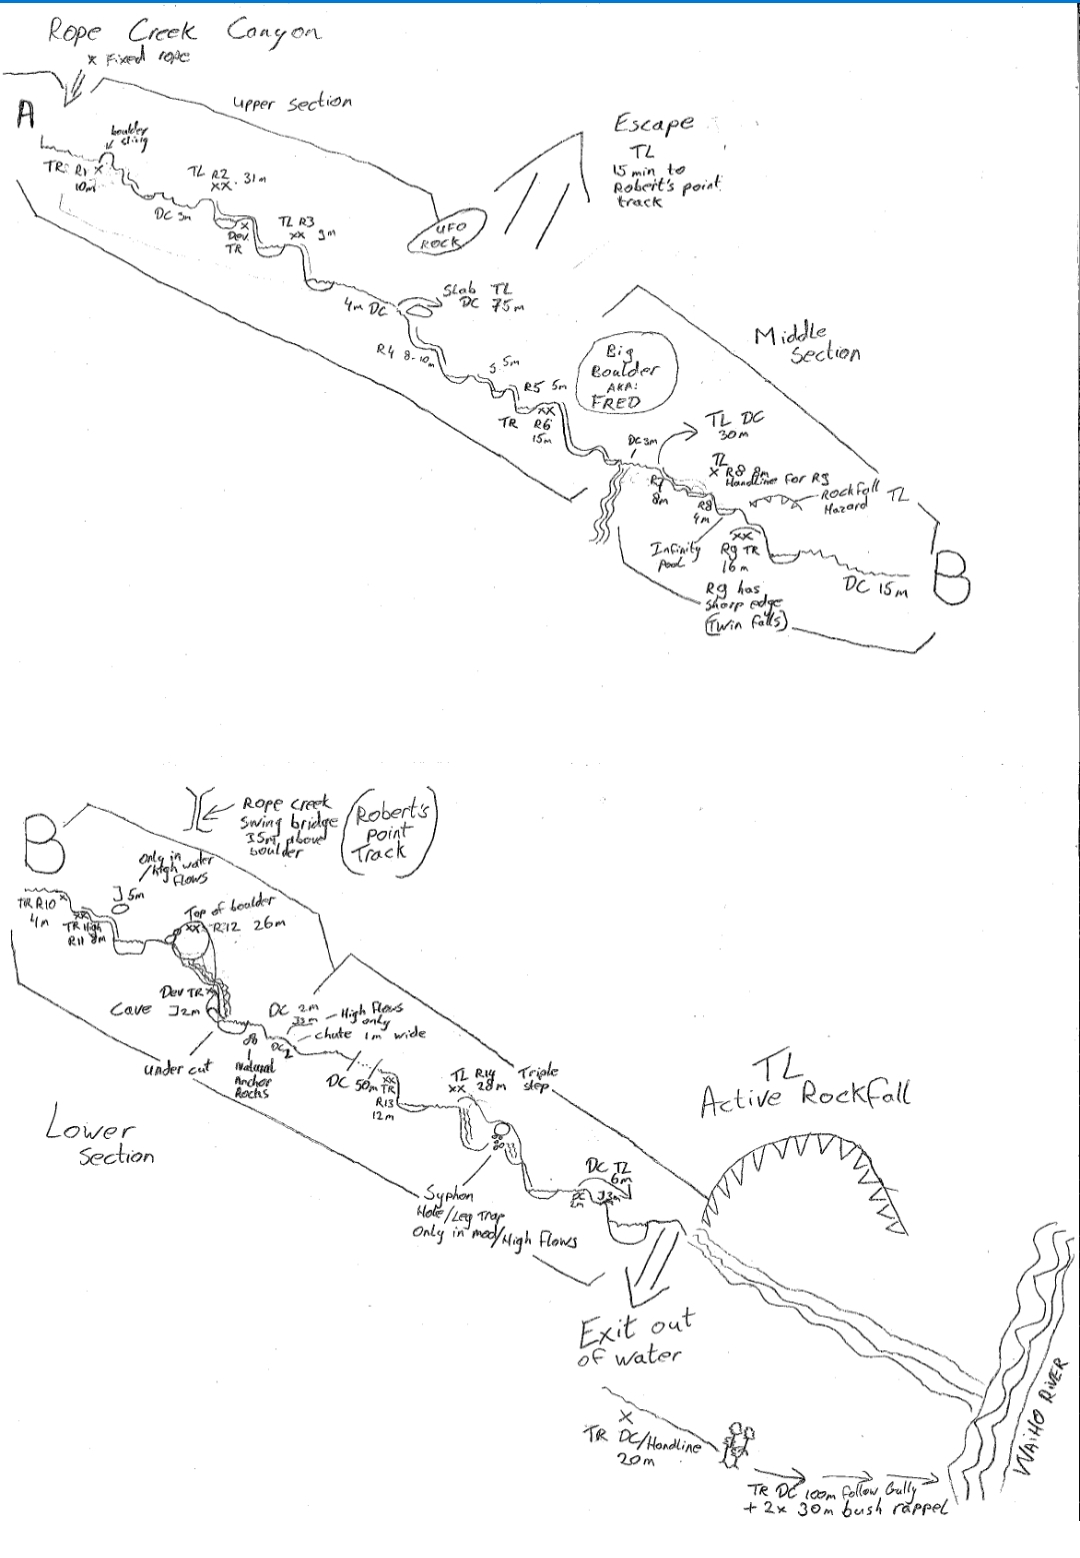 Rope Creek Canyon
x Fixed rope
A
upper section
boulder
sling
TR R1 x
10m
DC 3m
TL R2
xx 31m
x
Dev
TR
TL R3
xx 9m
UFO
ROCK
Escape
TL
15 min to
Robert's point
track
4m DC
Slab TL
DC 75m
R4 8-10m
5m
R5 5m
xx
TR R6
15m
Big
Boulder
AKA:
FRED
Middle
Section
DC 3m
TL DC
30m
R7
8m
TL
x R8 8m
Handline for R9
Rockfall TL
Hazard
R8
4m
Infinity
pool
xx
R9 TR
16m
R9 has
sharp edge
(Twin falls)
DC 15m
B
B
Rope creek
Swing bridge
35m above
boulder
Robert's
point
Track
only in
/High water
flows
J 5m
TR R10 x
4m
xx
TR High
R11 8m
Top of boulder
xx R12 26m
Dev TR x
Cave J2m
under cut
Natural
Anchor
Rocks
DC 2m
J3m – High flows
only
chute 1m wide
DC 2
DC 50m
xx
TR
R13
12m
TL R14
xx 28m
Triple
step
Lower
section
Syphon
Hole/Leg Trap
only in med/High flows
DC TL
6m
DC
2m
J3m
TL
Active Rockfall
Exit out
of water
x
TR DC/Handline
20m
TR DC 100m follow Gully
+ 2x 30m bush rappel
WAIHO RIVER